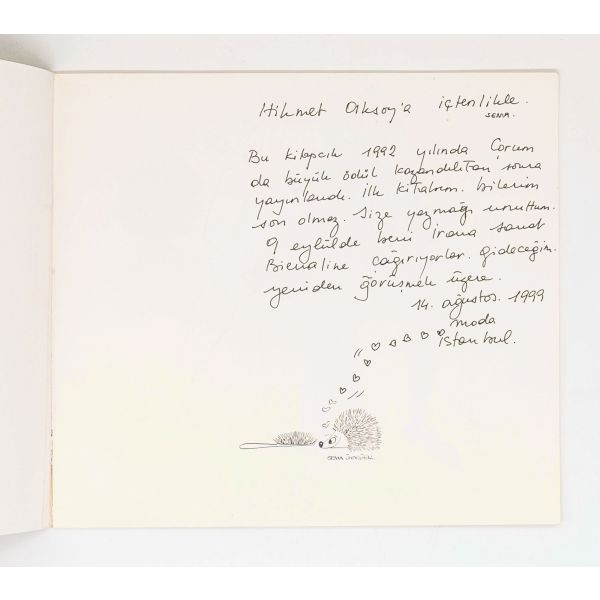 Hikmet Aksoy'a içtenlikle.
SEMA.
Bu kitapcık 1992 yılında Çorum
da büyük ödül kazandıktan sonra
yayınlandı. İlk kitabım. bilirim
son olmaz. Size yazmağı unuttum.
9 eylülde beni İrana sanat
Bienaline çağırıyorlar. gideceğim.
yeniden görüşmek üzere.
14. ağustos. 1999
moda
istanbul.
SEMA